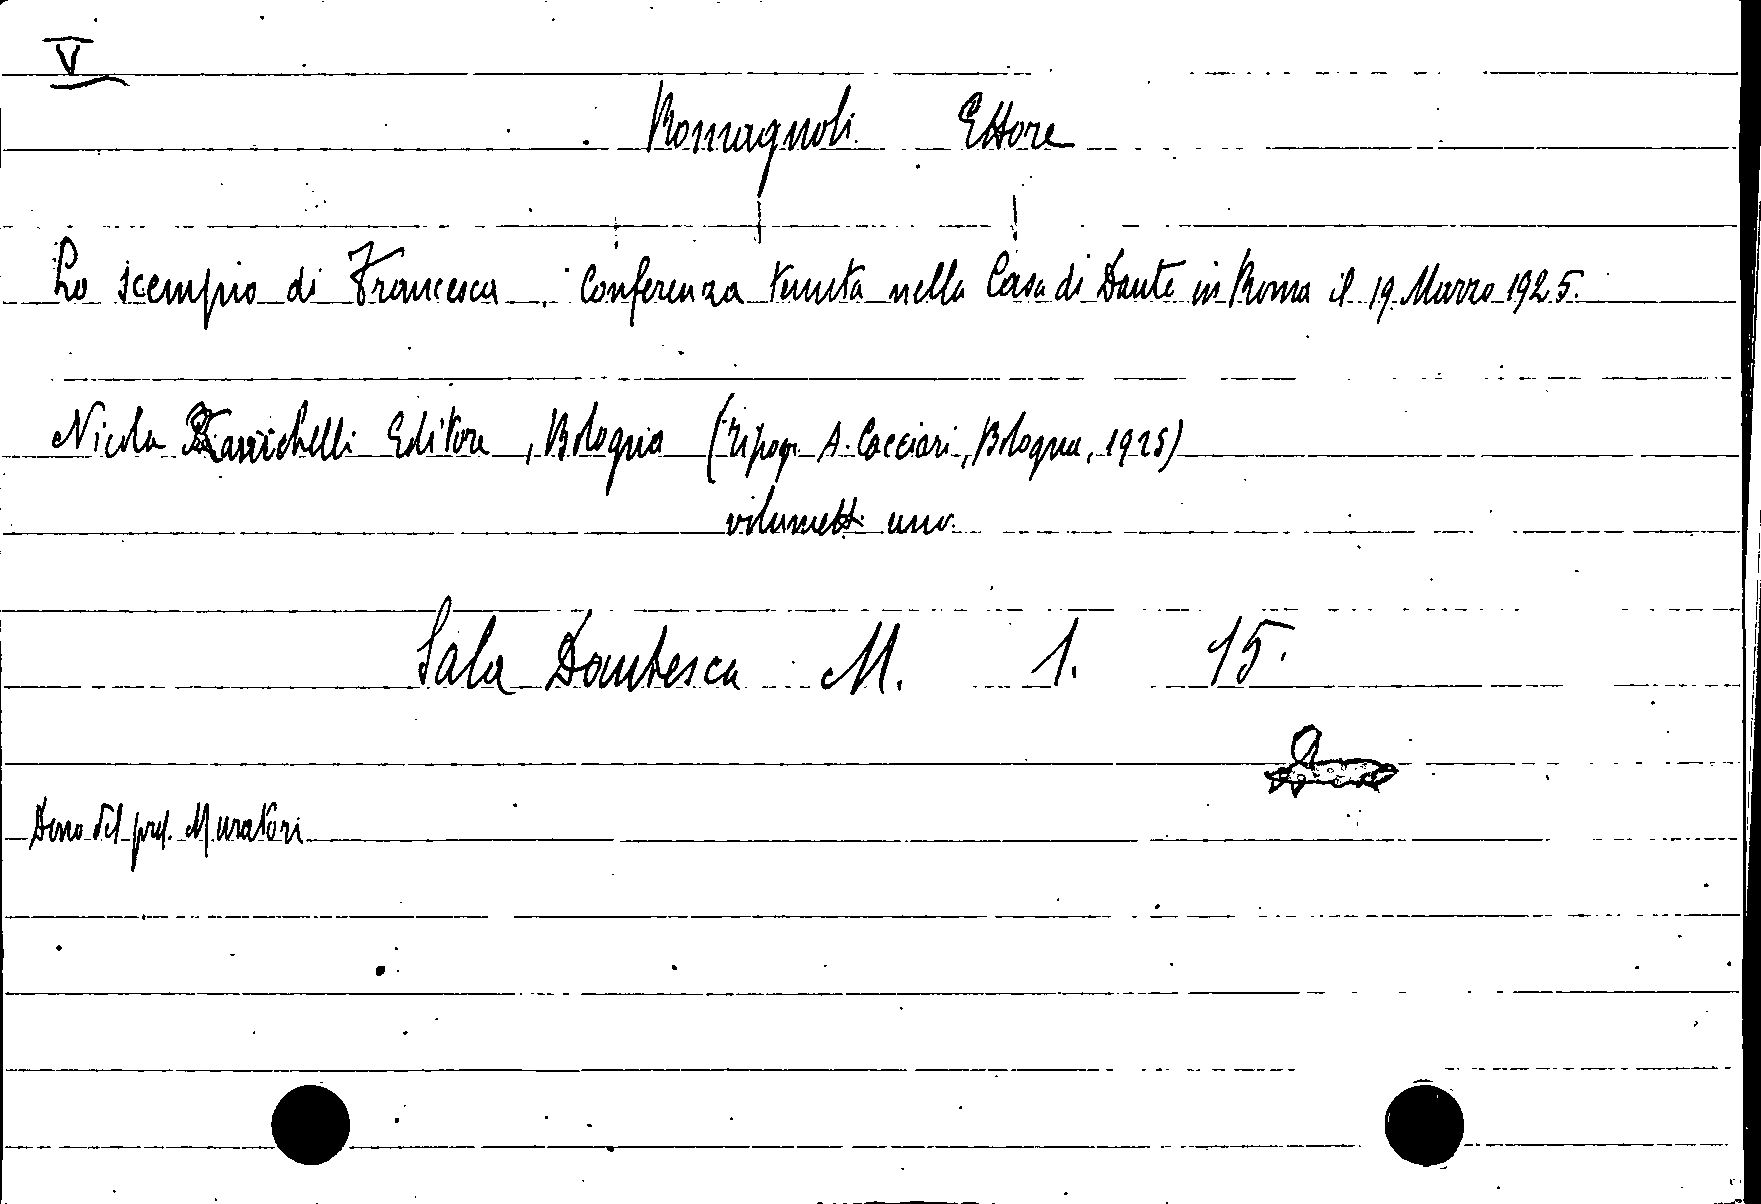 V
Romagnoli Ettore
Lo scempio di Francesca. Conferenza tenuta nella Casa di Dante in Roma il 19 Marzo 1925.
Nicola Zanichelli Editore, Bologna (Tipogr. A. Cacciari, Bologna, 1925)
volumetti uno.
Sala Dantesca M. 1. 15.
Dono del prof. Muratori